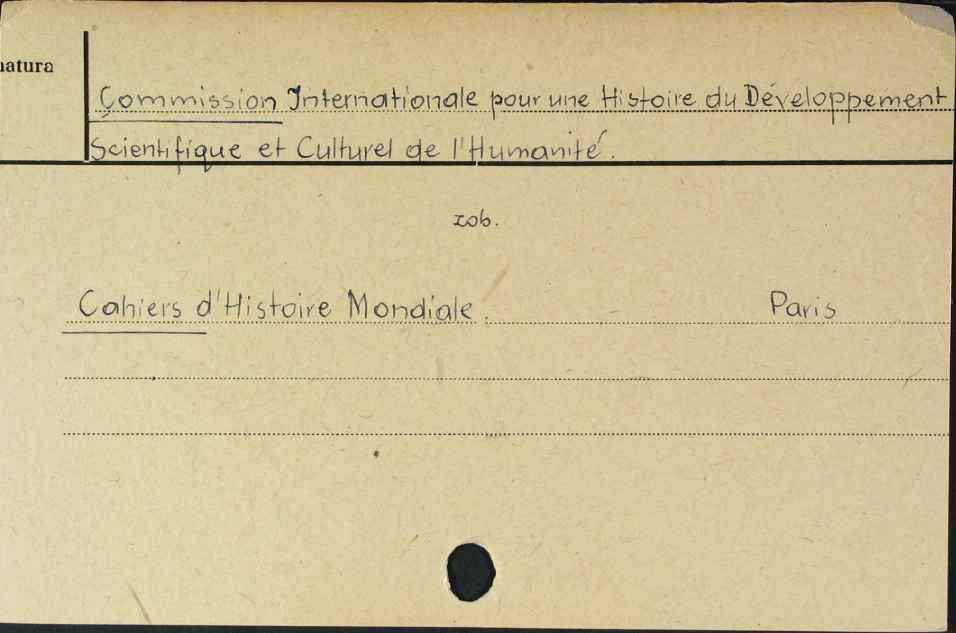 natura
Commission Internationale pour une Histoire du Développement
Scientifique et Culturel de l'Humanité.
zob.
Cahiers d'Histoire Mondiale. Paris